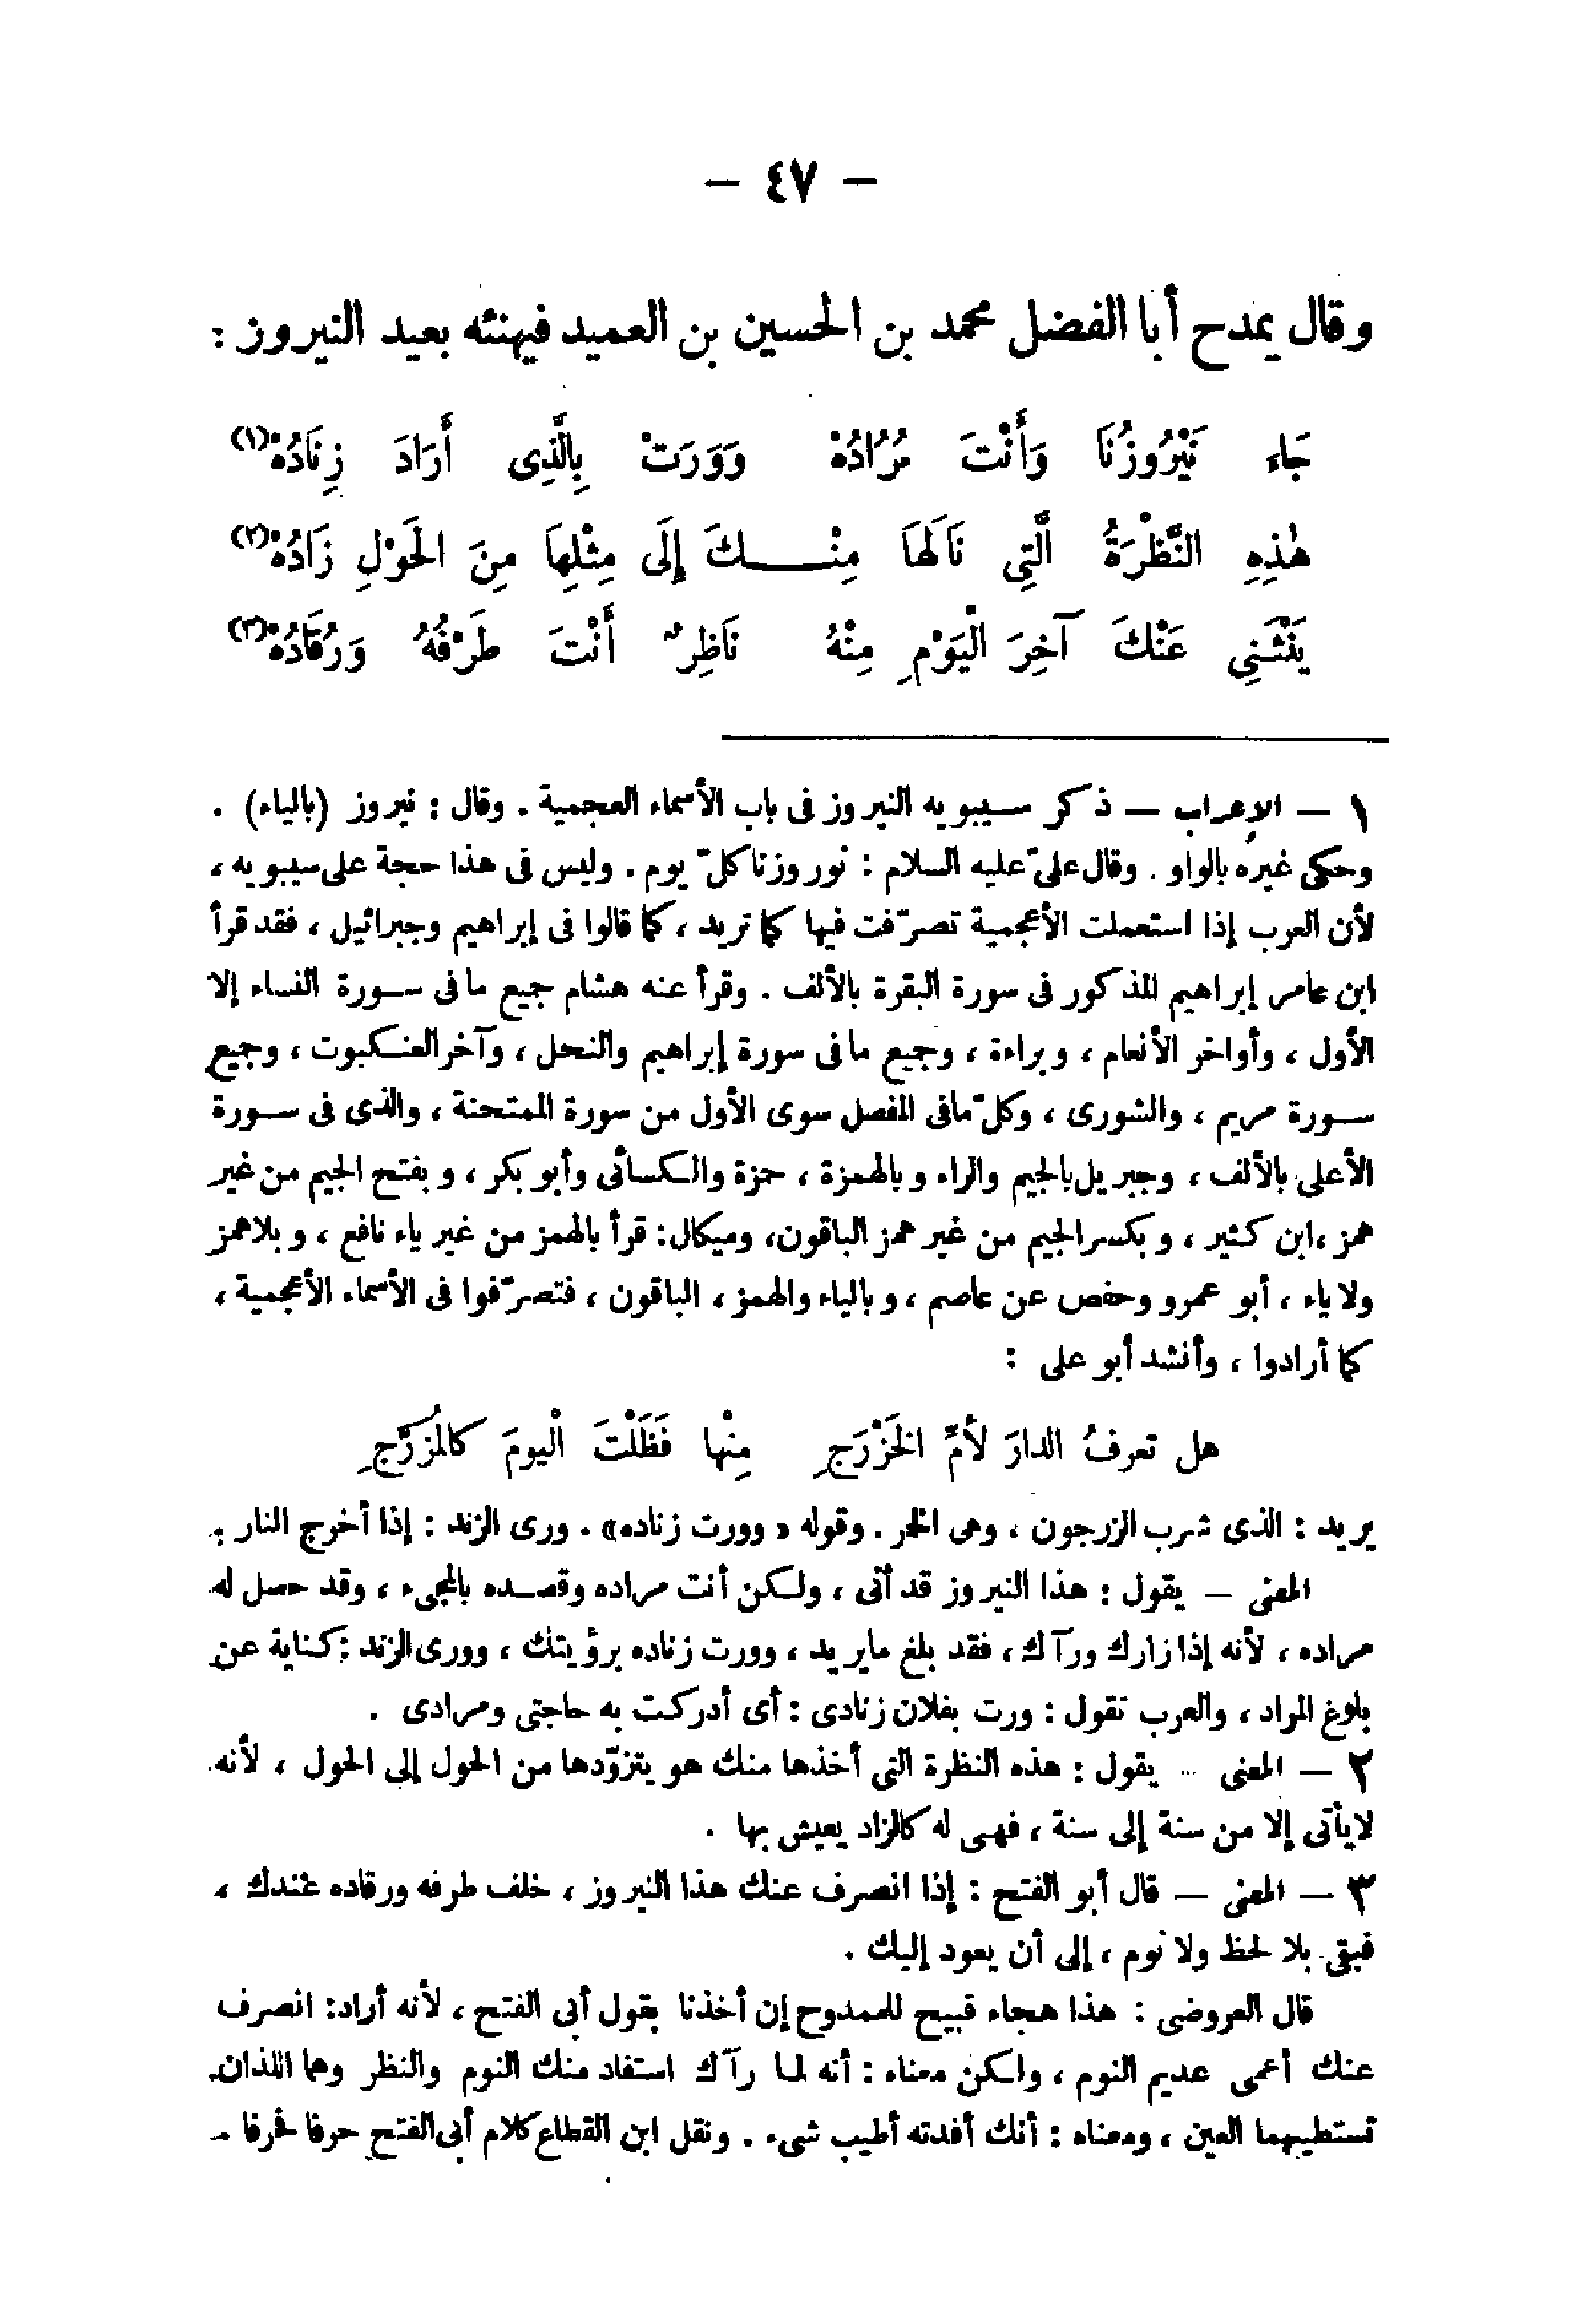 — ٤٧ —
وقال يمدح أبا الفضل محمد بن الحسين بن العميد فيهنئه بعيد النيروز :
جَاء نَيْرُوزُنَا وَأَنْتَ مُرَادُهْ وَوَرَتْ بِالَّذِى أَرَادَ زِنَادُهْ(١)
هٰذِهِ النَّظْرَةُ الَّتِى نَالَهَا مِنْـــكَ إِلَى مِثْلِهَا مِنَ الحَوْلِ زَادُهْ(٢)
يَنْثَنِى عَنْكَ آخِرَ الْيَوْمِ مِنْهُ نَاظِرٌ أَنْتَ طَرْفُهُ وَرُقَادُهْ(٣)
١ — الإعراب — ذكر سيبويه النيروز فى باب الأسماء العجمية . وقال : نيروز (بالياء) .
وحكى غيره بالواو . وقال علىّ عليه السلام : نوروزنا كلّ يوم . وليس فى هذا حجة على سيبويه ،
لأن العرب إذا استعملت الأعجمية تصرّفت فيها كما تريد ، كما قالوا فى إبراهيم وجبرائيل ، فقد قرأ
ابن عامر إبراهيم المذكور فى سورة البقرة بالألف . وقرأ عنه هشام جميع ما فى سورة النساء إلا
الأول ، وأواخر الأنعام ، وبراءة ، وجميع ما فى سورة إبراهيم والنحل ، وآخر العنكبوت ، وجميع
سورة مريم ، والشورى ، وكلّ مافى المفصل سوى الأول من سورة الممتحنة ، والذى فى سورة
الأعلى بالألف ، وجبريل بالجيم والراء وبالهمزة ، حمزة والكسائى وأبو بكر ، وبفتح الجيم من غير
همز ،ابن كثير ، وبكسر الجيم من غير همز الباقون، وميكال: قرأ بالهمز من غير ياء نافع ، وبلا همز
ولا ياء ، أبو عمرو وحفص عن عاصم ، وبالياء والهمز ، الباقون ، فتصرّفوا فى الأسماء الأعجمية ،
كما أرادوا ، وأنشد أبو على :
هل تعرفُ الدارَ لأمِّ الخَزْرَجِ مِنْها فَظَلْتَ الْيومَ كالمُزَرَّجِ
يريد : الذى شرب الزرجون ، وهى الخمر . وقوله « وورت زناده» . ورى الزند : إذا أخرج النار .
المعنى — يقول : هذا النيروز قد أتى ، ولكن أنت مراده وقصده بالمجىء ، وقد حصل له
مراده ، لأنه إذا زارك ورآك ، فقد بلغ مايريد ، وورت زناده برؤيتك ، وورى الزند : كناية عن
بلوغ المراد ، والعرب تقول : ورت بفلان زنادى : أى أدركت به حاجتى ومرادى .
٢ — المعنى — يقول : هذه النظرة التى أخذها منك هو يتزوّدها من الحول إلى الحول ، لأنه
لايأتى إلا من سنة إلى سنة ، فهى له كالزاد يعيش بها .
٣ — المعنى — قال أبو الفتح : إذا انصرف عنك هذا النيروز ، خلف طرفه ورقاده عندك ،
فبقى بلا لحظ ولا نوم ، إلى أن يعود إليك .
قال العروضى : هذا هجاء قبيح للممدوح إن أخذنا بقول أبى الفتح ، لأنه أراد: انصرف
عنك أعمى عديم النوم ، ولكن معناه : أنه لما رآك استفاد منك النوم والنظر وهما اللذان
تستطيبهما العين ، ومعناه : أنك أفدته أطيب شىء . ونقل ابن القطاع كلام أبى الفتح حرفا فحرفا .